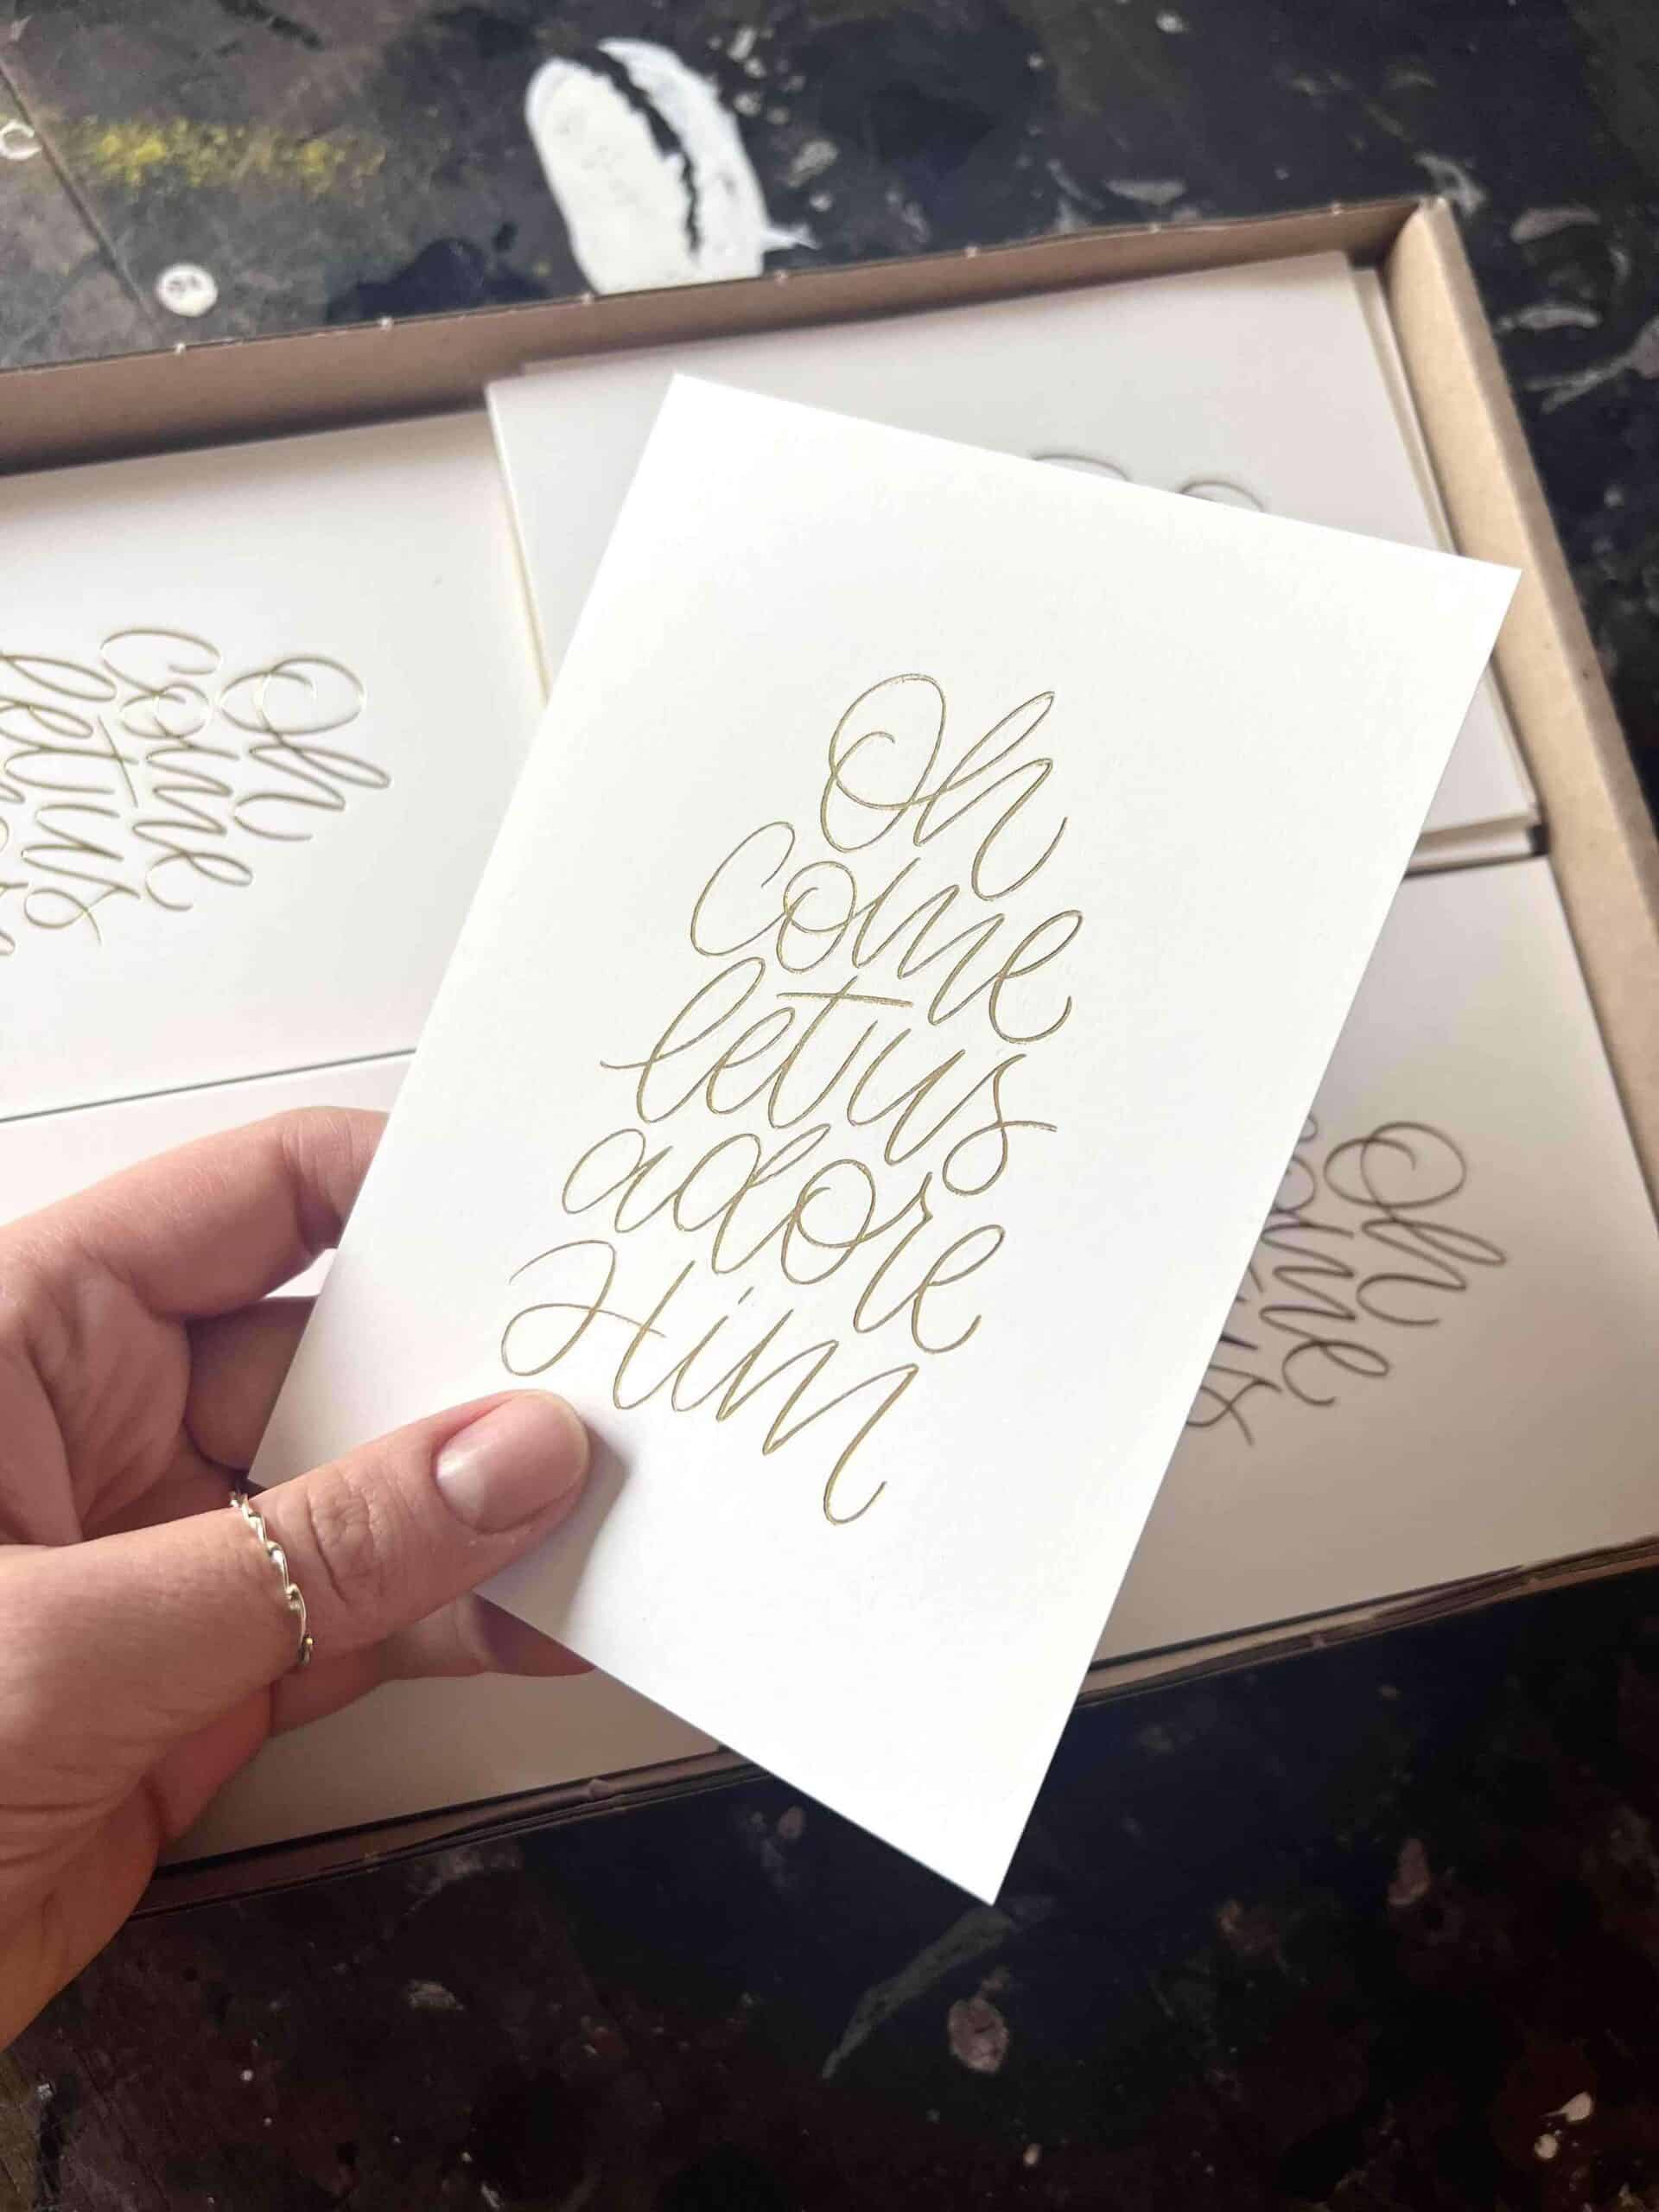 Oh
come
let us
adore
Him
Oh
come
let us
Oh
come
us